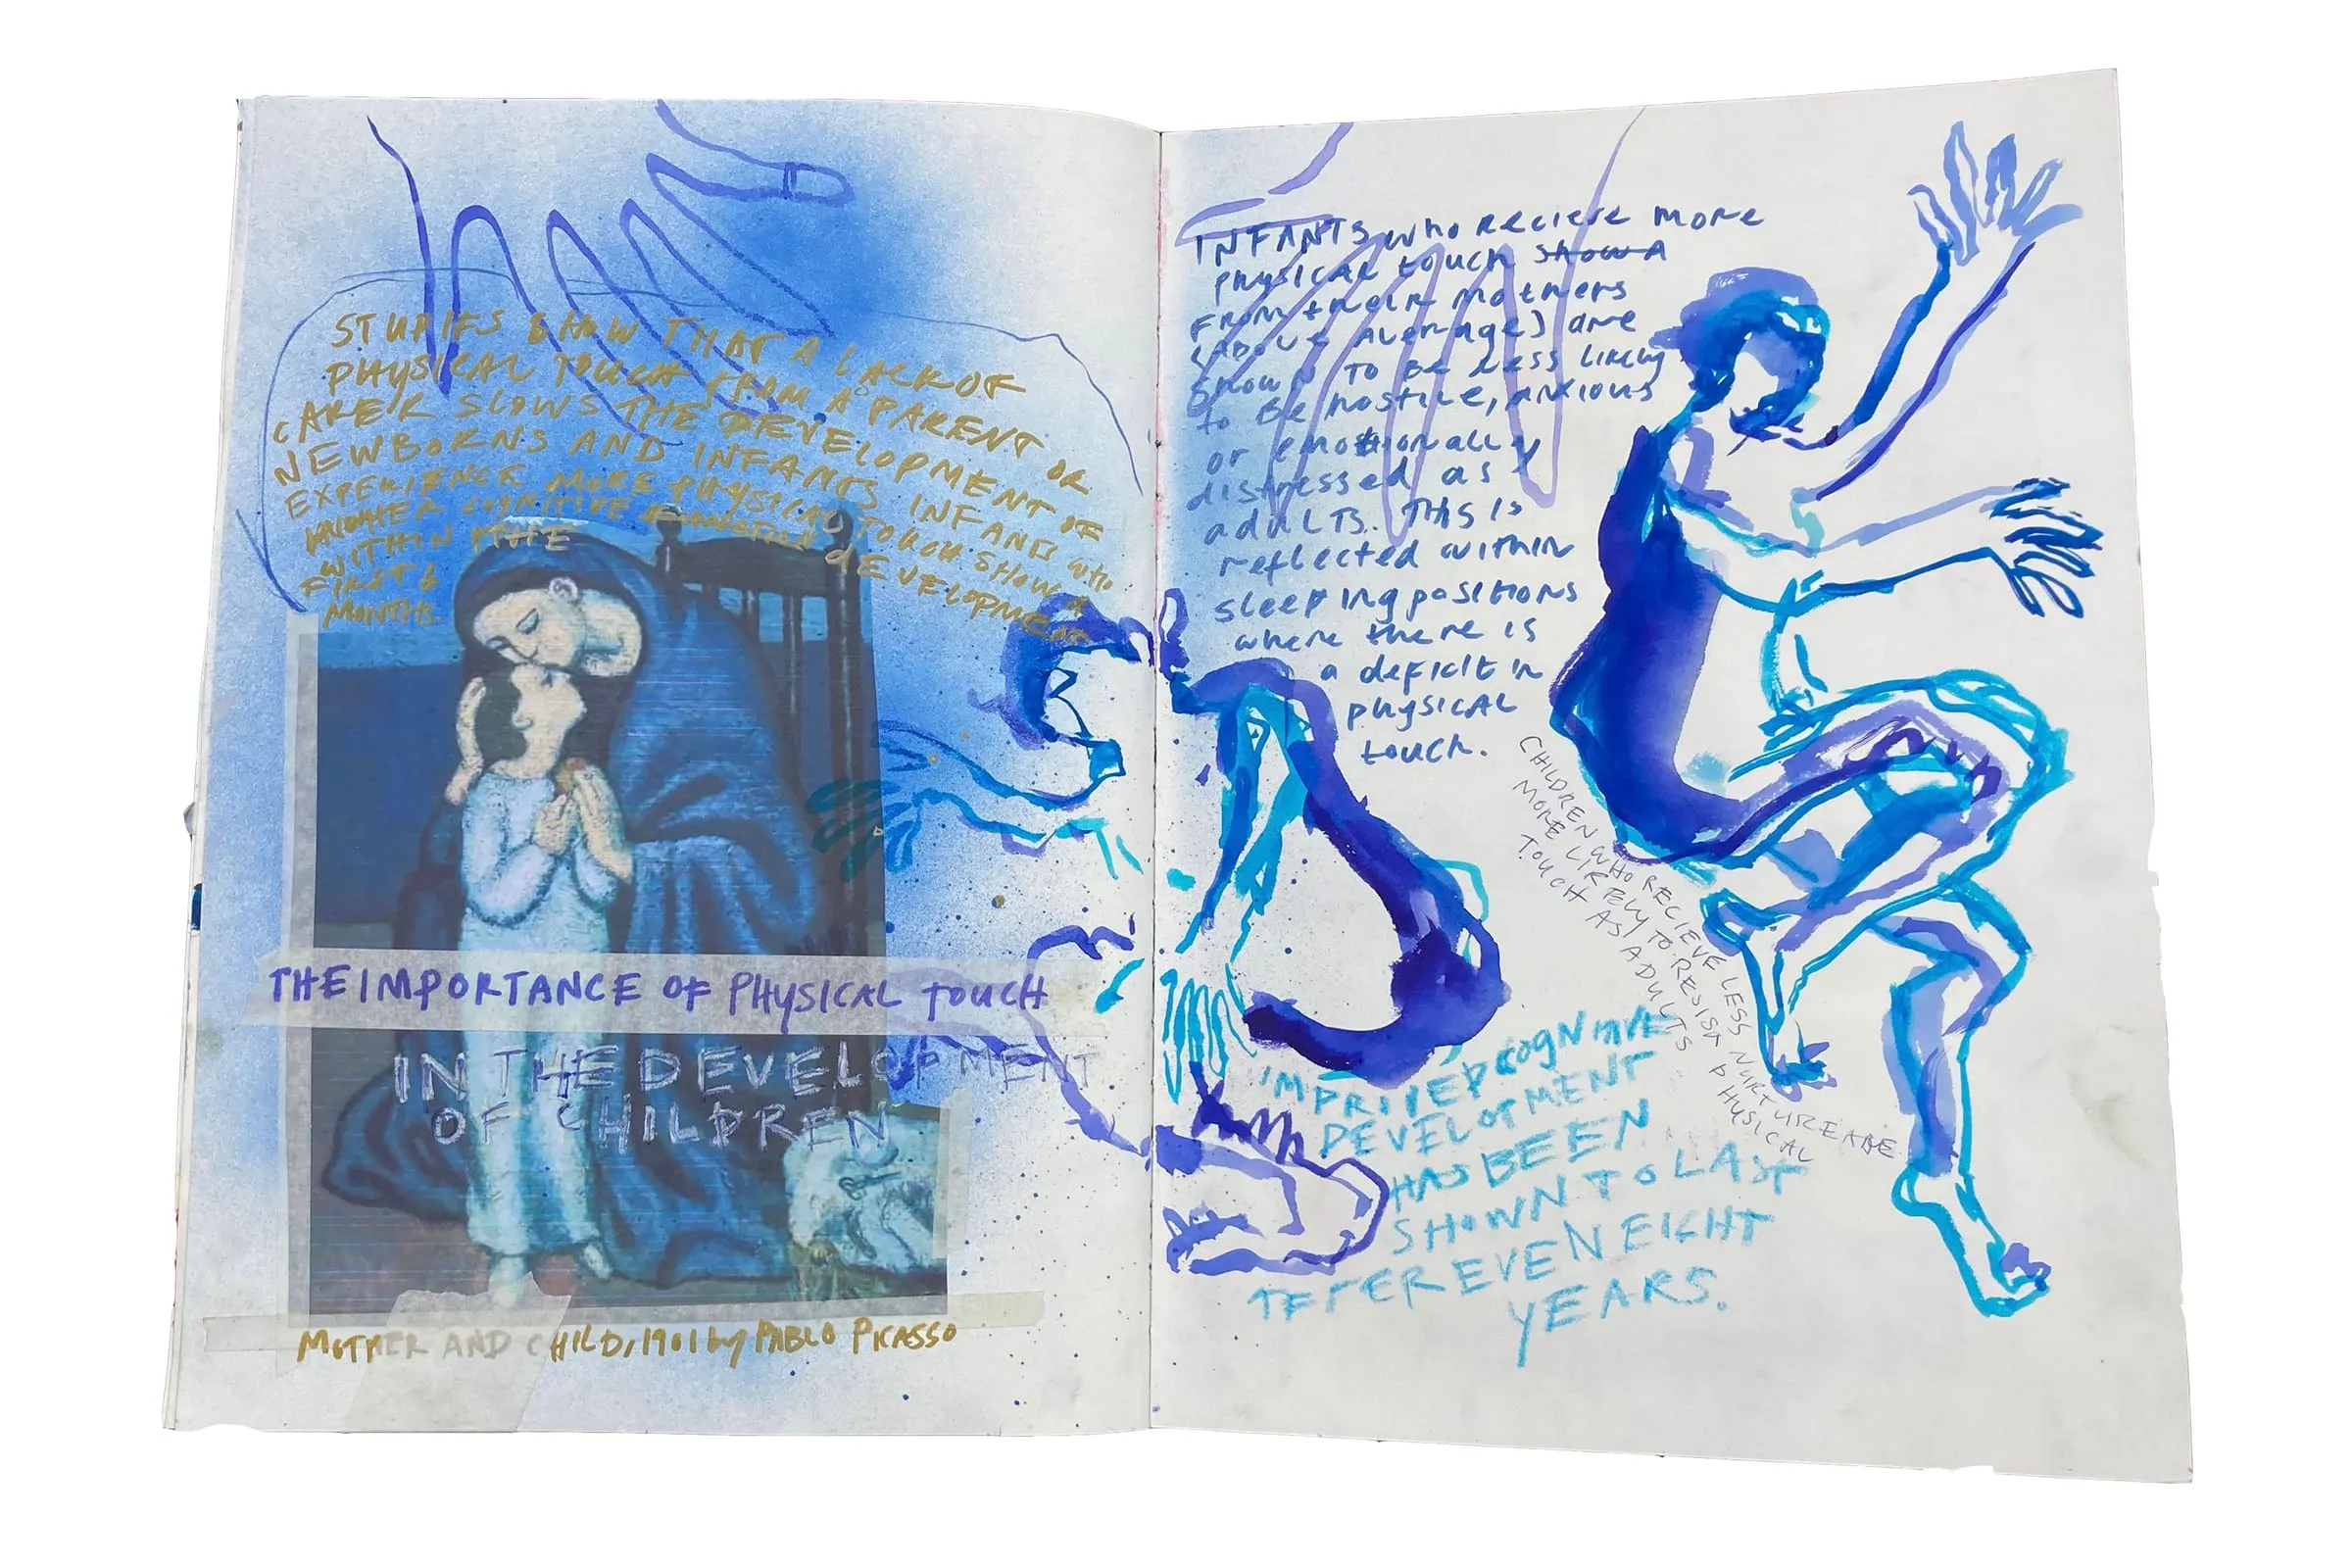 STUDIES SHOW THAT A LACK OF
PHYSICAL TOUCH FROM A PARENT OR
CARER SLOWS THE DEVELOPMENT OF
NEWBORNS AND INFANTS INFANTS who
EXPERIENCE MORE PHYSICAL TOUCH SHOW A
HIGHER COGNITIVE DEVELOPMENT
WITHIN THE
FIRST 6
MONTHS
THE IMPORTANCE OF PHYSICAL TOUCH
IN THE DEVELOPMENT
OF CHILDREN
MOTHER AND CHILD, 1901 by PABLO PICASSO
INFANTS who recieve more
physical touch show a
from their mothers
(above average) are
shown to be less likely
to be hostile, anxious
or emotionally
distressed as
adults. This is
reflected within
sleeping positions
where there is
a deficit in
physical
touch.
CHILDREN WHO RECIEVE LESS NURTURE ARE
MORE LIKELY TO RESIST PHYSICAL
TOUCH AS ADULTS
IMPROVED COGNITIVE
DEVELOPMENT
HAS BEEN
SHOWN TO LAST
AFTER EVEN EIGHT
YEARS.